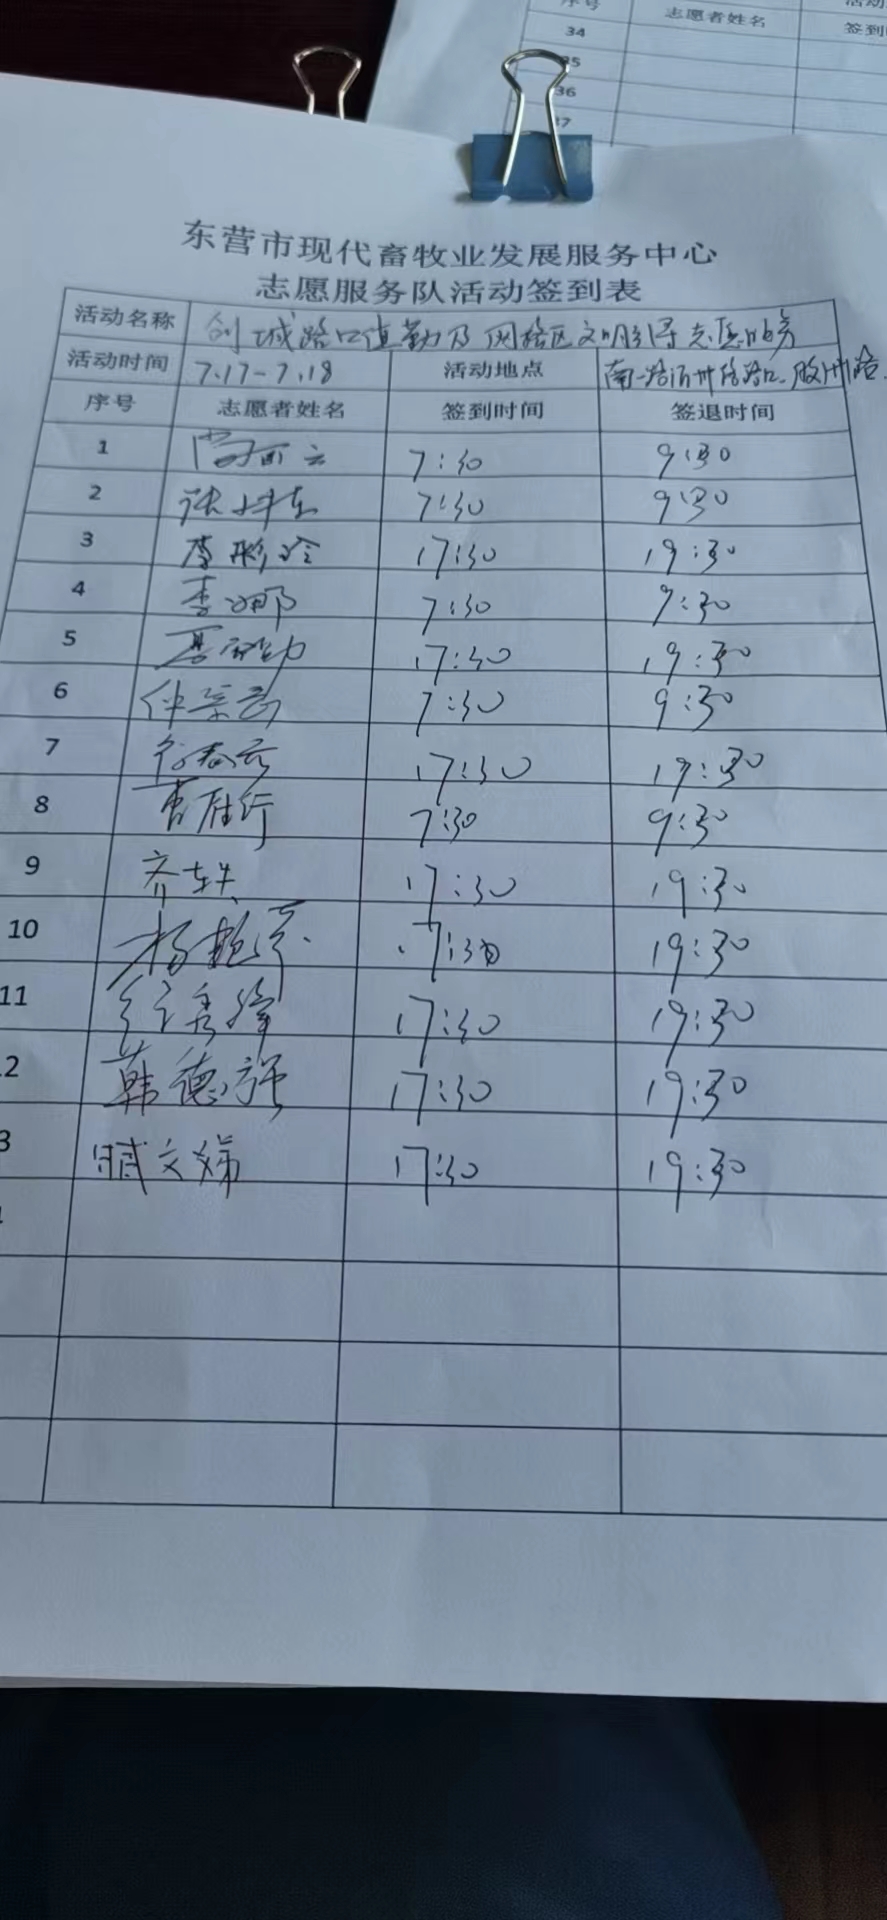 序号 志愿者姓名 签到
34
35
36
37
东营市现代畜牧业发展服务中心
志愿服务队活动签到表
活动名称 创城路口值勤及网格区文明引导志愿服务
活动时间 7.17-7.18 活动地点 南一路沂州路路口、胶州路
序号 志愿者姓名 签到时间 签退时间
1 7:30 9:30
2 7:30 9:30
3 李彤玲 17:30 19:30
4 李娜 7:30 9:30
5 17:30 19:30
6 仲崇 7:30 9:30
7 17:30 19:30
8 曹胜行 7:30 9:30
9 齐轶 17:30 19:30
10 杨艳 17:30 19:30
11 任秀峰 17:30 19:30
2 韩德强 17:30 19:30
3 臧文娣 17:30 19:30